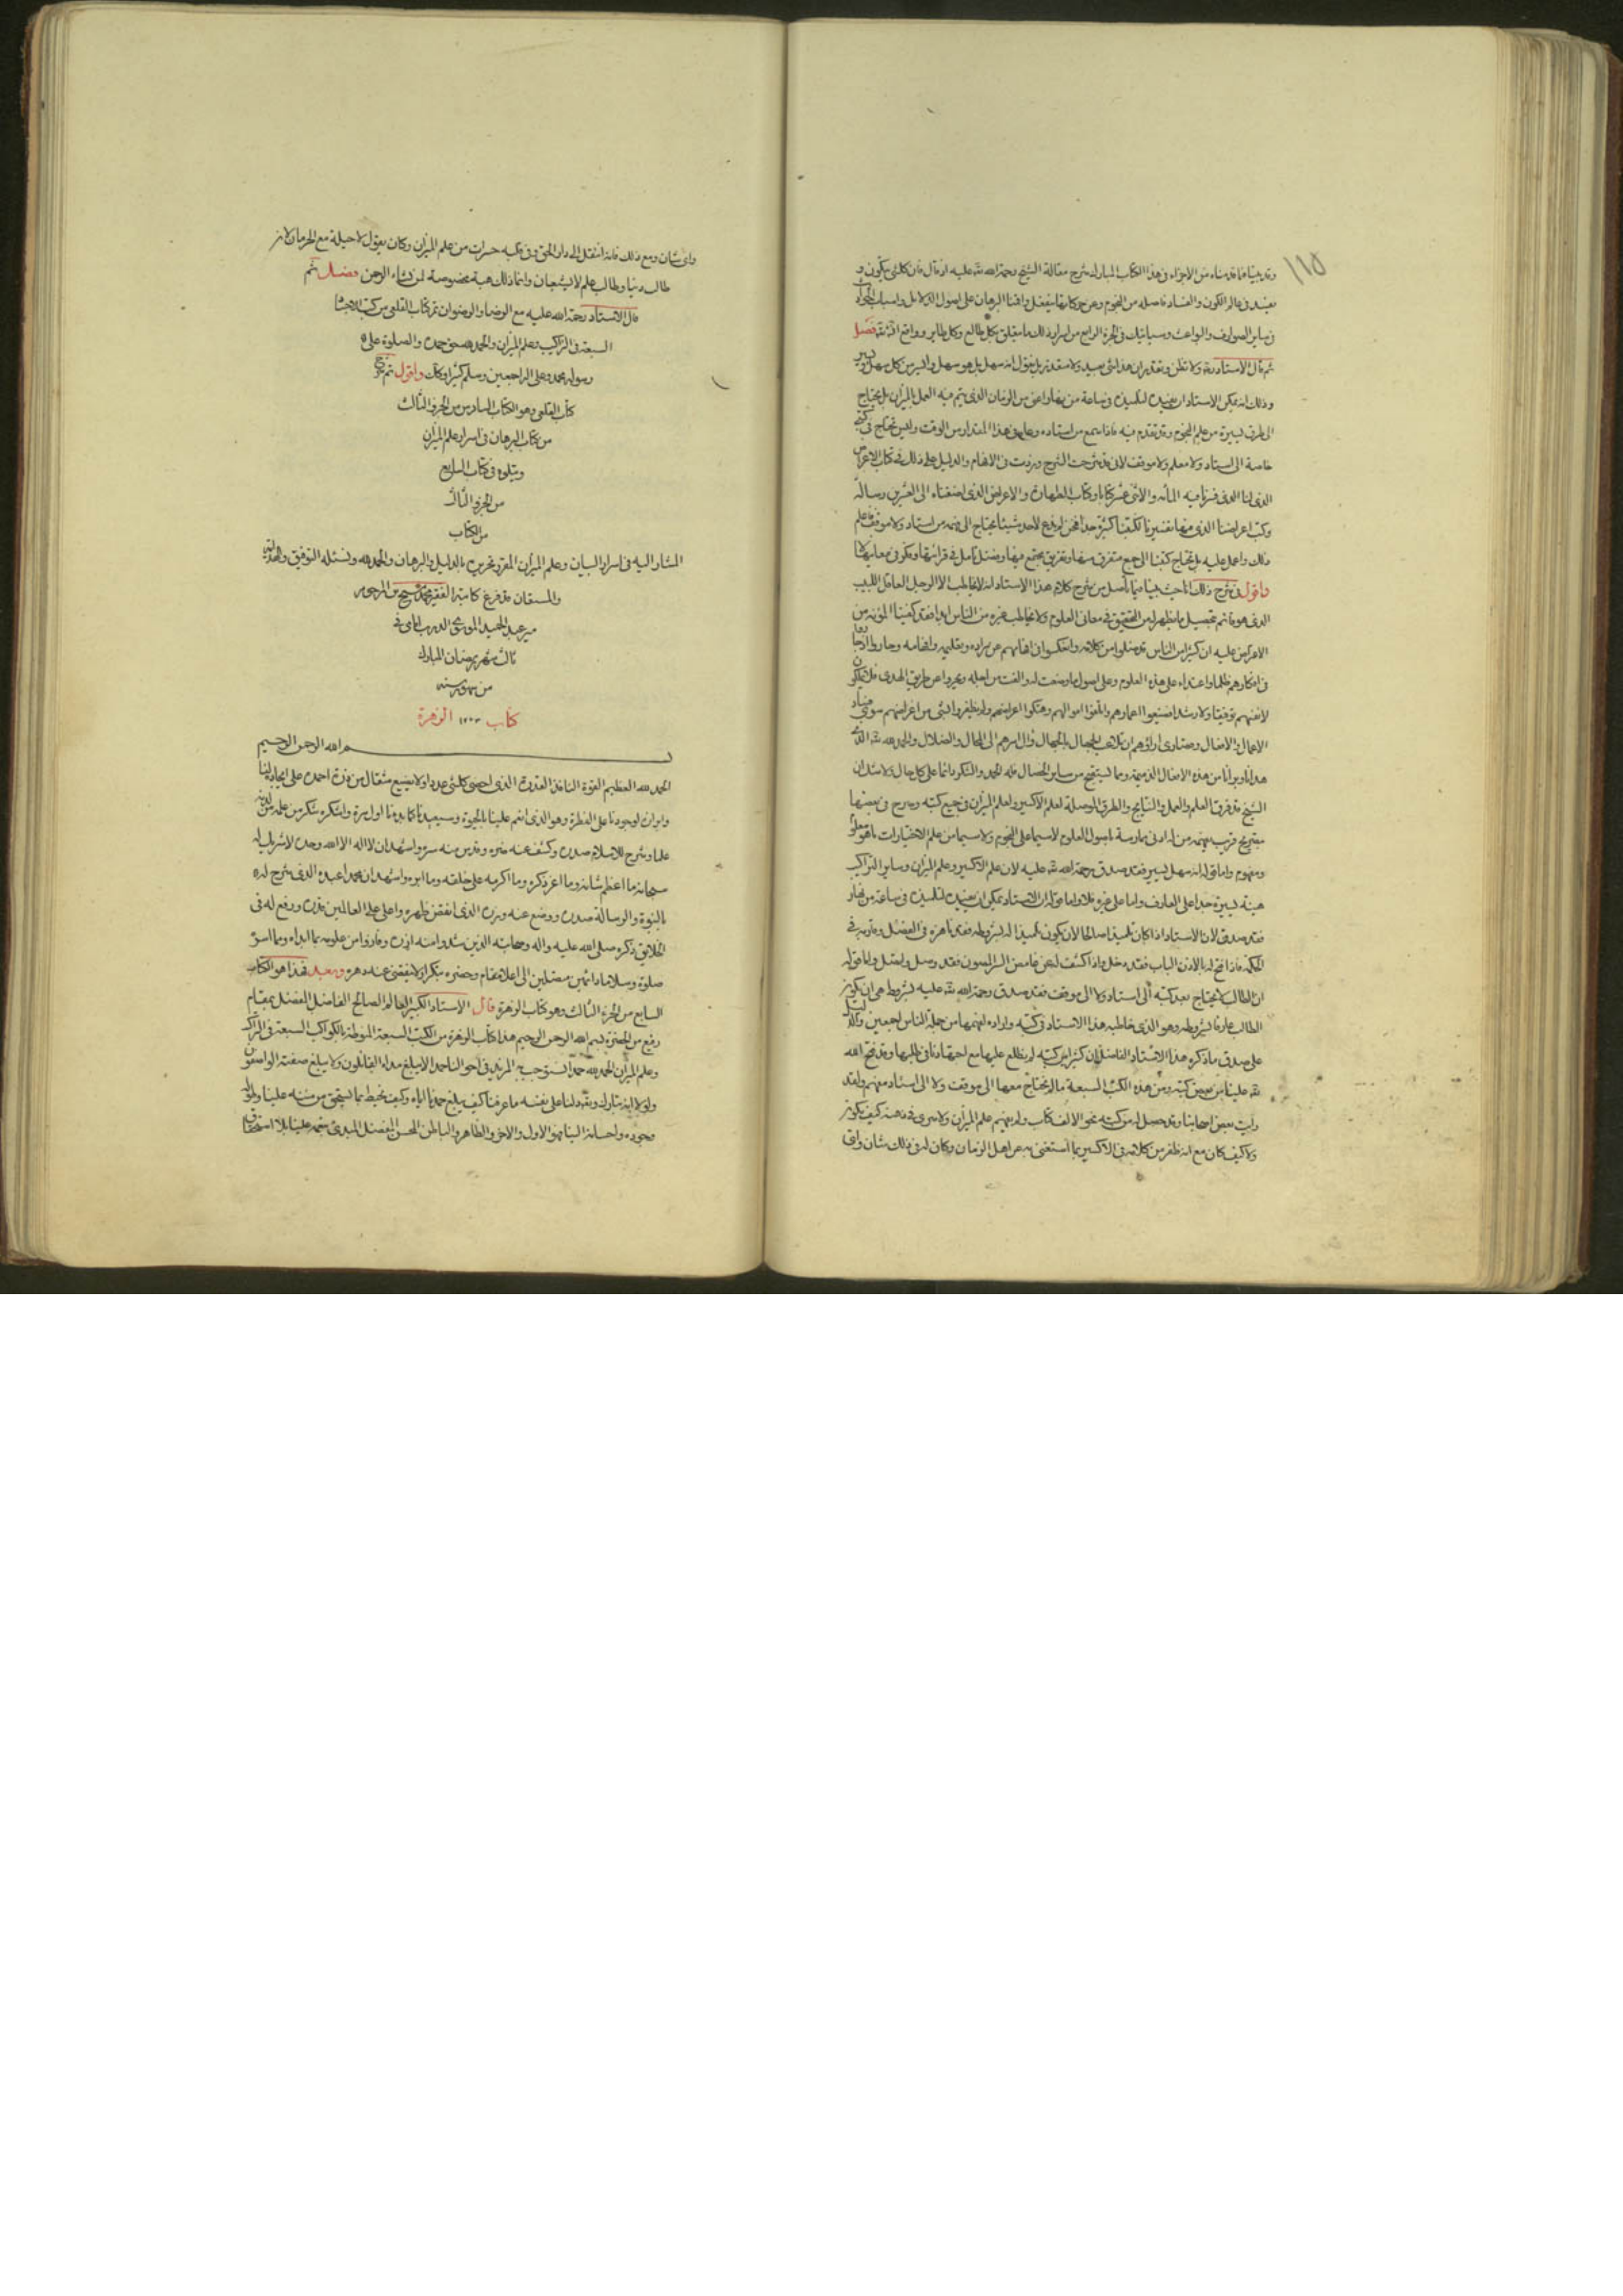 ١١٥
وقد بينا فيما قدمناه من الاجزاء في هذا الكتاب المبارك شرح مقالة الشيخ رحمة الله عليه اذ قال فان كلشئ يكون و
يفسد في عالم الكون والفساد فاصله من النجوم وعن حركاتها ينفعل واقمنا البرهان على اصول الدلايل واسباب
في ساير الصوارف والبواعث وسياتيك في الجزء الرابع من اسرار ذلك ما يتعلق بكل طالع وكل طاير وواقع فصل
ثم قال الاستاد ولا تظن وتقدر ان هذا شئ بعيد ولا متعذر بل نقول انه سهل بل هو سهل وايسر من كل سهل
وذلك انه يمكن الاستاد ان يفيده لتلميذه في ساعة من نهار اعني من الزمان الذي يتم فيه العمل بالميزان بل يحتاج
الى طرق يسيرة من علم النجوم وقد تقدم فيه فاذا سمع من استاده وعلم في هذا المقدار من الوقت وليس تحتاج في كتبي
خاصة الى استاد ولا معلم ولا موقف لاني قد شرحت الشرح وبردت في الافهام والدليل على ذلك في كتاب الاعراض
الذي لنا الذي فسرنا فيه المأة والاثني عشر كتابا وكتاب الطهارة والاعراض الذي اضفناه الى العشرين رسالة
وكتب اعراضنا الذي منها تفسيرنا لكتبنا كثيرة جدا فنحن لم ندع لاحد شيئا يحتاج الى فهمه من استاد ولا موقف فاعلم
ذلك واعمل عليه بل تحتاج كتبنا الى جمع متفرق منها وتفريق مجتمع فيها وفضل تامل في قراءتها
واقول في شرح ذلك انا حيث بينا فيما سلف من شرح كلام هذا الاستاد انه لا يخاطب الا الرجل العاقل اللبيب
الذي هو قائم بتحصيل ما يظهر له من التحقيق في معاني العلوم ولا يخاطب غيره من الناس ابدا فقد كفينا المؤنة من
الاعراض عليه ان كثيرا من الناس قد ضلوا من كلامه وانعكسوا في افهامهم عن مراده وتعليمه وافهامه
في افكارهم ظلما واعتداء على هذه العلوم وعلى اصول ما وضعت له والفت من اجله وبحروا عن طريق الهدى
لانفسهم توفيقا ولا رشدا فضيعوا اعمارهم وانفقوا اموالهم وهتكوا اعراضهم ولم يظفروا بشئ من اغراضهم سوى
الاعمال والافعال وقصارى اراؤهم ان تلاعب الجهال بالجهال وال امرهم الى المحال والضلال والحمد لله
هدانا وبرانا من هذه الافعال الذميمة وما يستقبح من ساير الخصال فله الحمد والشكر دائما على كل حال ولا شك ان
الشيخ قد فرق العلم والعمل والنتايج والطرق الموصلة لعلم الاكسير ولعلم الميزان في جميع كتبه وصرح في بعضها
بتصريح قريب يفهمه من له ادنى ممارسة باصول العلوم لا سيما علم النجوم ولا سيما من علم الاختيارات ما هو
ومفهوم واما قوله انه سهل يسير فقد صدق رحمة الله عليه لان علم الاكسير وعلم الميزان وساير التراكيب
هينة يسيرة جدا على العارف واما على غيره فلا واما قوله ان الاستاد يمكن ان يفيده لتلميذه في ساعة من نهار
فقد صدق لان الاستاد اذا كان تلميذا صالحا لان يكون تلميذا له بشروطه فقد ناهزه في الفضل وقاربه في
الحكمة فاذا فتح له بالاذن الباب فقد دخل واذا كشف له عن غامض السر المصون فقد وصل واتصل واما قوله
ان الطالب لا يحتاج بعد كتبه الى استاد ولا الى موقف فقد صدق رحمة الله عليه بشروط هي ان يكون
الطالب عارفا بشروطه وهو الذي خاطبه هذا الاستاد في كتبه واراده لفهمها من جملة الناس اجمعين والدليل
على صدق ما ذكره هذا الاستاد الفاضل ان كثيرا من كتبه لم نطلع عليها مع اجتهادنا في طلبها وقد فتح الله
علينا من بعض كتبه ومن هذه الكتب السبعة ما لم نحتاج معها الى موقف ولا الى استاد مفهم ولقد
رايت بعض اصحابنا وقد حصل له من كتبه نحو الالف كتاب ولم يفهم علم الميزان ولا سرى في ذهنه كيف يكون
ولا كيف كان مع انه ظفر من كلامه في الاكسير بما استغنى به عن اهل الزمان وكان له في ذلك شان واي
واي شان ومع ذلك فانه انتقل الى دار الحق وفي قلبه حسرات من علم الميزان وكان يقول لا حيلة مع الحرمان لان
طالب دنيا وطالب علم لا يشبعان وانما ذلك هبة مخصوصة لمن يشاء الرحمن فصل ثم
قال الاستاد رحمة الله عليه مع الرضا والرضوان تم كتاب القلعي من كتب الاجساد
السبعة في التراكيب وعلم الميزان والحمد لله حق حمده والصلوة على
رسوله محمد وعلى اله اجمعين وسلم كثيرا وكان واقول تم شرح
كتاب القلعي وهو الكتاب السادس من الجزء الثالث
من كتاب البرهان في اسرار علم الميزان
ويتلوه في كتاب السابع
من الجزء الثالث
من الكتاب
المشار اليه في اسرار البيان وعلم الميزان المقرون تحريره بالدليل والبرهان والحمد لله ونسئله التوفيق والهداية
والمستعان قد فرغ كاتبه الفقير محمد مسيح بن المرحوم
مير عبد الحميد الموسوي في
ثالث شهر رمضان المبارك
من شهور سنه
كتاب ١٢٠٣ الزهرة
بسم الله الرحمن الرحيم
الحمد لله العظيم القوة النافذ القدرة الذي احصى كلشئ عددا ولا يضيع مثقال من ذرة احمده على ايجاده لنا
وابرازه لوجودنا على الفطرة وهو الذي انعم علينا بالحيوة وسيعيدنا كما بدءنا اول مرة واشكره شكر من علمه من لدنه
علما وشرح للاسلام صدره وكشف عنه ضره وقدس منه سره واشهد ان لا اله الا الله وحده لا شريك له
سبحانه ما اعظم شانه وما اعز ذكره وما اكرمه على خلقه وما ابره واشهد ان محمدا عبده الذي شرح له
بالنبوة والرسالة صدره ووضع عنه وزره الذي انقض ظهره واعلى على العالمين قدره ورفع له في
الخلايق ذكره صلى الله عليه واله وصحابته الذين شدوا منه ازره وفازوا من علومه بما ابداه وما اسره
صلوة وسلاما دائمين متصلين الى اعلا مقام وحضره متكررا لا ينقضي عند دهره وبعد فهذا هو الكتاب
السابع من الجزء الثالث وهو كتاب الزهرة قال الاستاد الكبير العالم الصالح الفاضل المفضل بمقام
رفيع من الحضرة بسم الله الرحمن الرحيم هذا كتاب الزهرة من الكتب السبعة المنوطة بالكواكب السبعة في التراكيب
وعلم الميزان الحمد لله حمدا نستوجب به المزيد في احوالنا حمدا لا يبلغ مداه القائلون ولا يبلغ صفته الواصفون
ولولا انه تبارك وتعالى دلنا على نفسه ما عرفناه كيف يبلغ حمدنا اياه وكيف نحيط بما يستحق من مننه علينا
وجوده واحسانه الينا فهو الاول والاخر والظاهر والباطن المحسن المفضل المبدئ بنعمه علينا بلا استحقاق